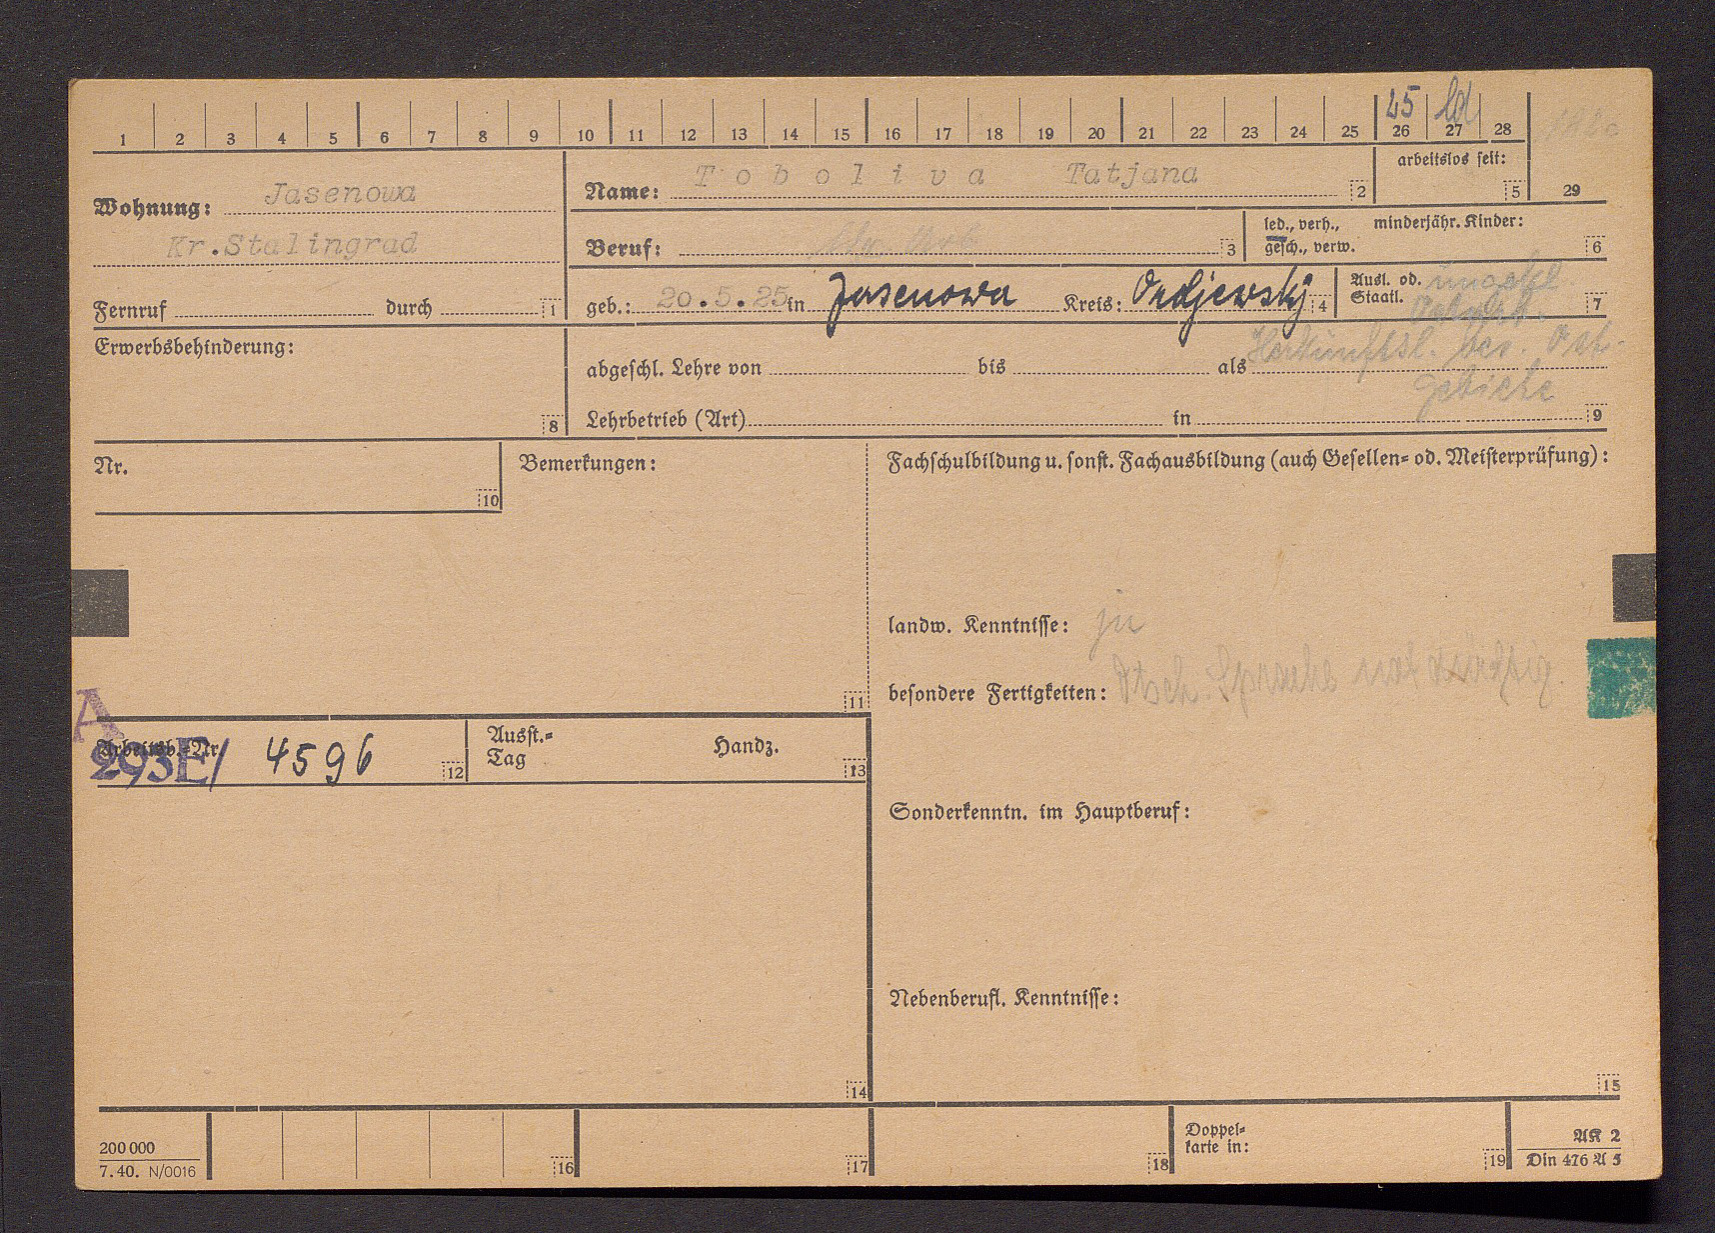 45
1 2 3 4 5 6 7 8 9 10 11 12 13 14 15 16 17 18 19 20 21 22 23 24 25 26 27 28
arbeitslos seit:
5
29
Wohnung: Jasenowa
Kr.Stalingrad
Fernruf durch 1
Name: Toboliva Tatjana 2
Beruf: 3
led., verh., minderjähr. Kinder:
gesch., verw. 6
geb.: 20.5.25 in Jasenowa Kreis: Ordjewsky 4
Ausl. od. ungekl.
Staatl. 7
Erwerbsbehinderung:
8
Herkunftsl. bes. Ost-
abgeschl. Lehre von bis als
gebiete
Lehrbetrieb (Art) in 9
Nr.
10
Bemerkungen:
11
Fachschulbildung u. sonst. Fachausbildung (auch Gesellen- od. Meisterprüfung):
landw. Kenntnisse: ja
besondere Fertigkeiten: Dtsch. Sprache
A
Arbeitsb.-Nr.
293E/ 4596 12
Ausst.-
Tag
Handz.
13
Sonderkenntn. im Hauptberuf:
Nebenberufl. Kenntnisse:
14
15
200 000
7.40. N/0016
16
17
18
Doppel-
karte in:
19
AK 2
Din 476 A 5